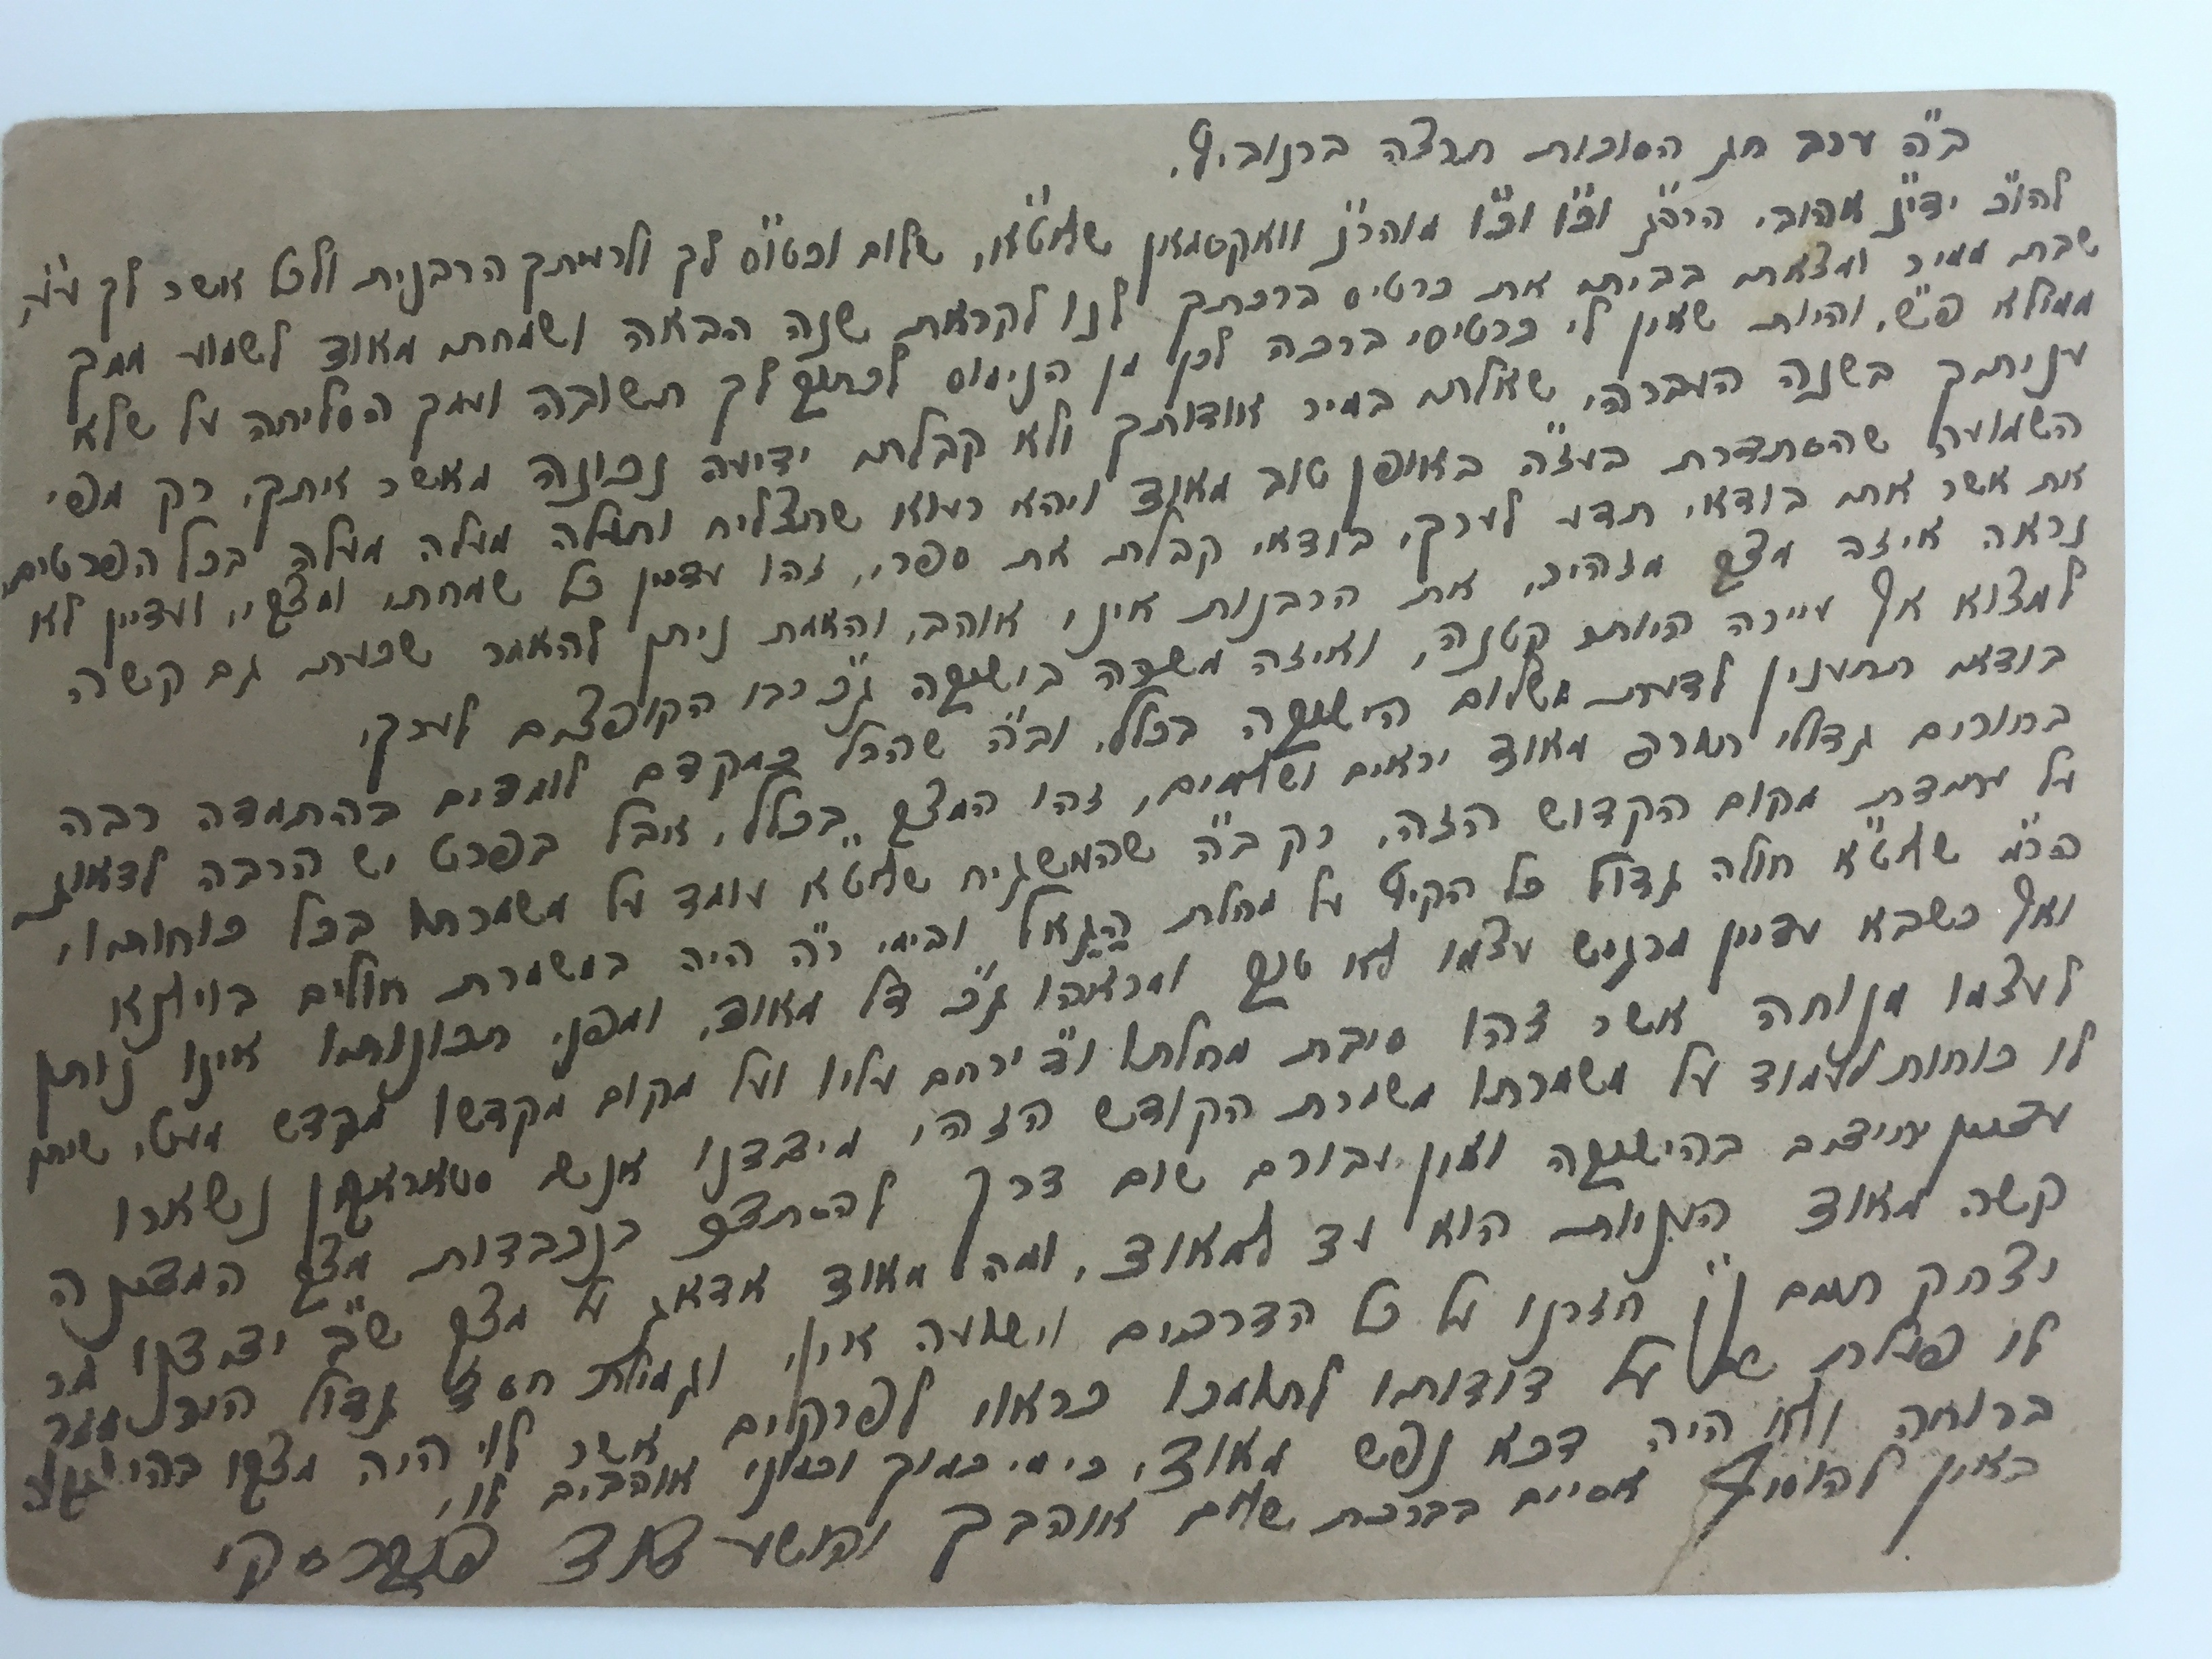 ב"ה ערב חג הסוכות תרצה ברנוביץ.
להו"כ ידי"נ אהובי, הרה"ג וכו' וכו' מוהר"נ וואקסמאן שליט"א, שלום וכטו"ס לך ולרעיתך הרבנית ולכל אשר לך
שבתי ממיר ומצאתי בביתי את כרטיס ברכתך לנו לקראת שנה הבאה ושמחתי מאוד לשמוע ממך
ממולא פ"ש, והיות שאין לי כרטיסי ברכה לכן מן הנימוס לכתוב לך תשובה ועמך הסליחה על שלא
עניתך בשנה העברה, שאלתי במיר אודותך ולא קבלתי ידיעה נכונה מאשר איתך, רק מפי
השמועה שהסתדרת בעז"ה באופן טוב מאוד ויהא רעוא שתצליח ותעלה מעלה מעלה בכל הפרטים,
את אשר אתי בודאי תדע לערך, בודאי קבלת את ספרי, זהו עדיין כל שמחתי ומצבי, ועדיין לא
נראה איזה מצב מזהיר, את הרבנות איני אוהב, והאמת ניתן להאמר שכעת גם קשה
למצוא אף עיירה היותר קטנה, ואיזה משרה בישיבה ג"כ רבו הקופצים לערך,
בודאי תתענין לדעת משלום הישיבה בכלל, וב"ה שהכל כמקדם לומדים בהתמדה רבה
בחורים גדולי תורה מאוד יראים ושלימים, זהו המצב בכלל, אבל בפרט יש הרבה לדאוג
על עמדת מקום הקדוש הזה, רק ב"ה שהמשגיח שליט"א עומד על משמרתו בכל כוחותיו,
הר"מ שליט"א חולה גדול כל הקיץ על מחלת ובימי ר"ה היה במשמרת חולים בווילנא
ואף כשבא עדיין מרגיש עצמו לא טוב ומראהו ג"כ דל מאוד, ומפני תכונותיו אינו נותן
לעצמו מנוחה אשר זהו סיבת מחלתו וד' ירחם עליו ועל מקום מקדשו מקדש מעט, שיתן
לו כוחות לעמוד על משמרתו משמרת הקודש הזה, מידידנו אנשי סטאראבין נשארו
עדיין בהישיבה ואין עבורם שום דרך להסתדר בנכבדות מצב
קשה מאוד העניות הוא עד למאוד, ומה מאוד אדאג על מצב ש"ב ידידנו מר
יצחק תנחום נ"י חזרנו על כל הדרכים וישועה אין, וגמילת חסד גדול היית גומר
לו פעלת על דודותו לתומכו כראוי לפרקים אשר לוי היה מצבו בהישיבה
ברוחה ולא היה דכא נפש מאוד, כי מי כמוך וכמוני אוהבים לו,
באין להוסיף אסיים בברכת שלום אוהבך יהושע